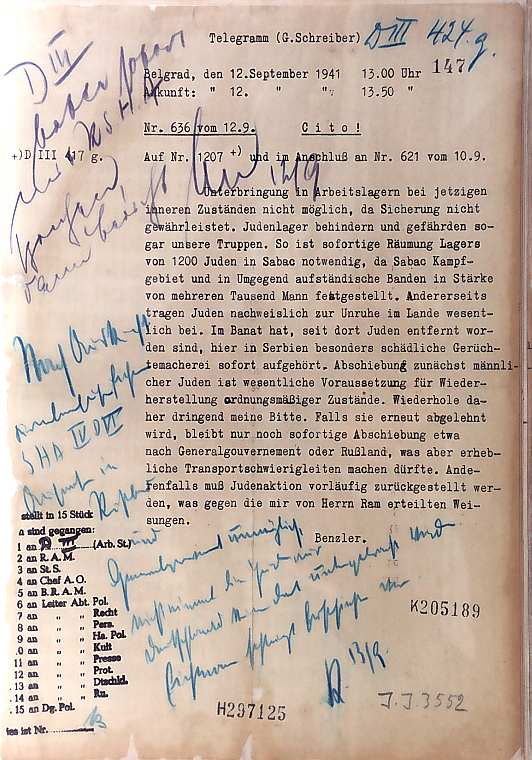 Telegramm (G.Schreiber) D III 424 g.
147
Belgrad, den 12.September 1941 13.00 Uhr
Ankunft: " 12. " " 13.50 "
Nr. 636 vom 12.9. Cito!
+)D III 417 g. Auf Nr. 1207 +) und im Anschluß an Nr. 621 vom 10.9.
Unterbringung in Arbeitslagern bei jetzigen
inneren Zuständen nicht möglich, da Sicherung nicht
gewährleistet. Judenlager behindern und gefährden so-
gar unsere Truppen. So ist sofortige Räumung Lagers
von 1200 Juden in Sabac notwendig, da Sabac Kampf-
gebiet und in Umgegend aufständische Banden in Stärke
von mehreren Tausend Mann festgestellt. Andererseits
tragen Juden nachweislich zur Unruhe im Lande wesent-
lich bei. Im Banat hat, seit dort Juden entfernt wor-
den sind, hier in Serbien besonders schädliche Gerüch-
temacherei sofort aufgehört. Abschiebung zunächst männli-
cher Juden ist wesentliche Voraussetzung für Wieder-
herstellung ordnungsmäßiger Zustände. Wiederhole da-
her dringend meine Bitte. Falls sie erneut abgelehnt
wird, bleibt nur noch sofortige Abschiebung etwa
nach Generalgouvernement oder Rußland, was aber erheb-
liche Transportschwierigleiten machen dürfte. Ande-
renfalls muß Judenaktion vorläufig zurückgestellt wer-
den, was gegen die mir von Herrn Ram erteilten Wei-
sungen.
Benzler.
D III
RSHA
12/9
Nach Auskunft
SHA IV D VI
in
Rußland
und
Generalgouvernement unmöglich
nicht einmal die Juden aus
Deutschland
Eichmann schlägt vor
13/9
stellt in 15 Stück
n sind gegangen:
1 an D III (Arb. St.)
2 an R.A.M.
3 an St.S.
4 an Chef A.O.
5 an B.R.A.M.
6 an Leiter Abt. Pol.
7 an " " Recht
8 an " " Pers.
9 an " " Ha. Pol.
.0 an " " Kult
11 an " " Presse
12 an " " Prot.
.13 an " " Dtschld.
.14 an " " Ru.
.15 an Dg. Pol.
ies ist Nr.
K205189
H297125
J.J.3552